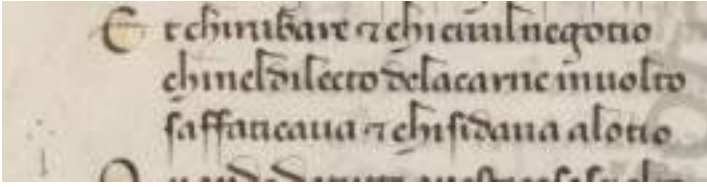 E t chi rubare ⁊ chi ciuil negotio
chi nel dilecto dela carne inuolto
saffaticaua ⁊ chi sidaua alotio